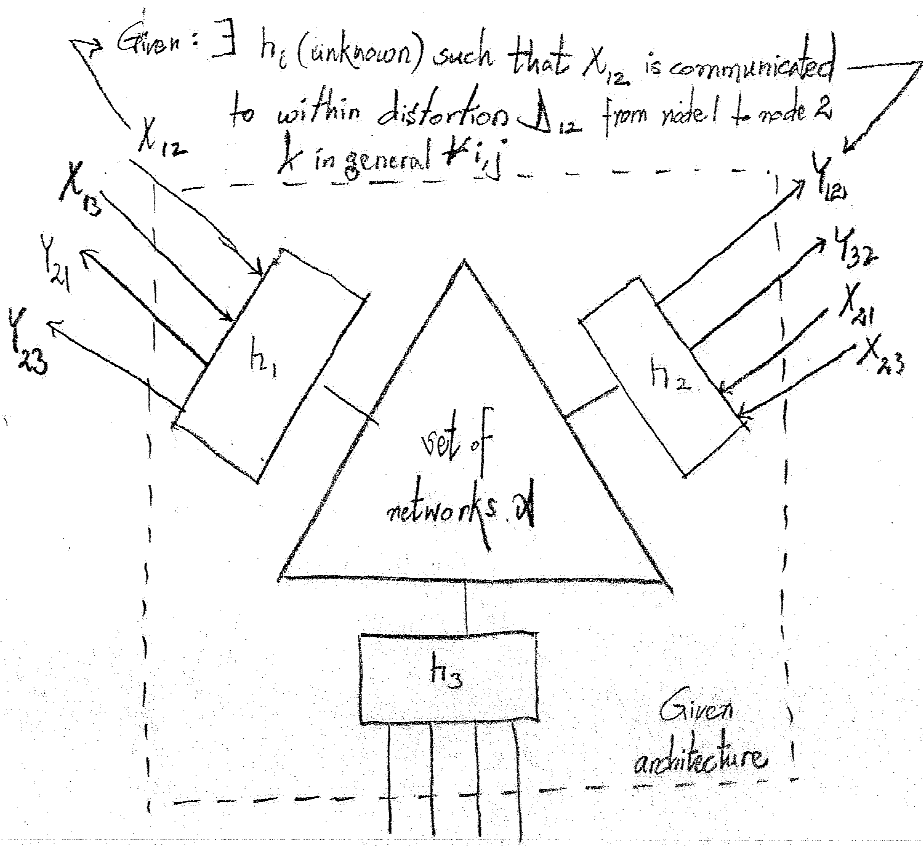 Given: ∃ h_i (unknown) such that X_12 is communicated
to within distortion Δ_12 from node 1 to node 2
& in general ∀ i,j
X_12
X_13
Y_21
Y_23
Y_12
Y_32
X_21
X_23
h_1
h_2
set of
networks
h_3
Given
architecture